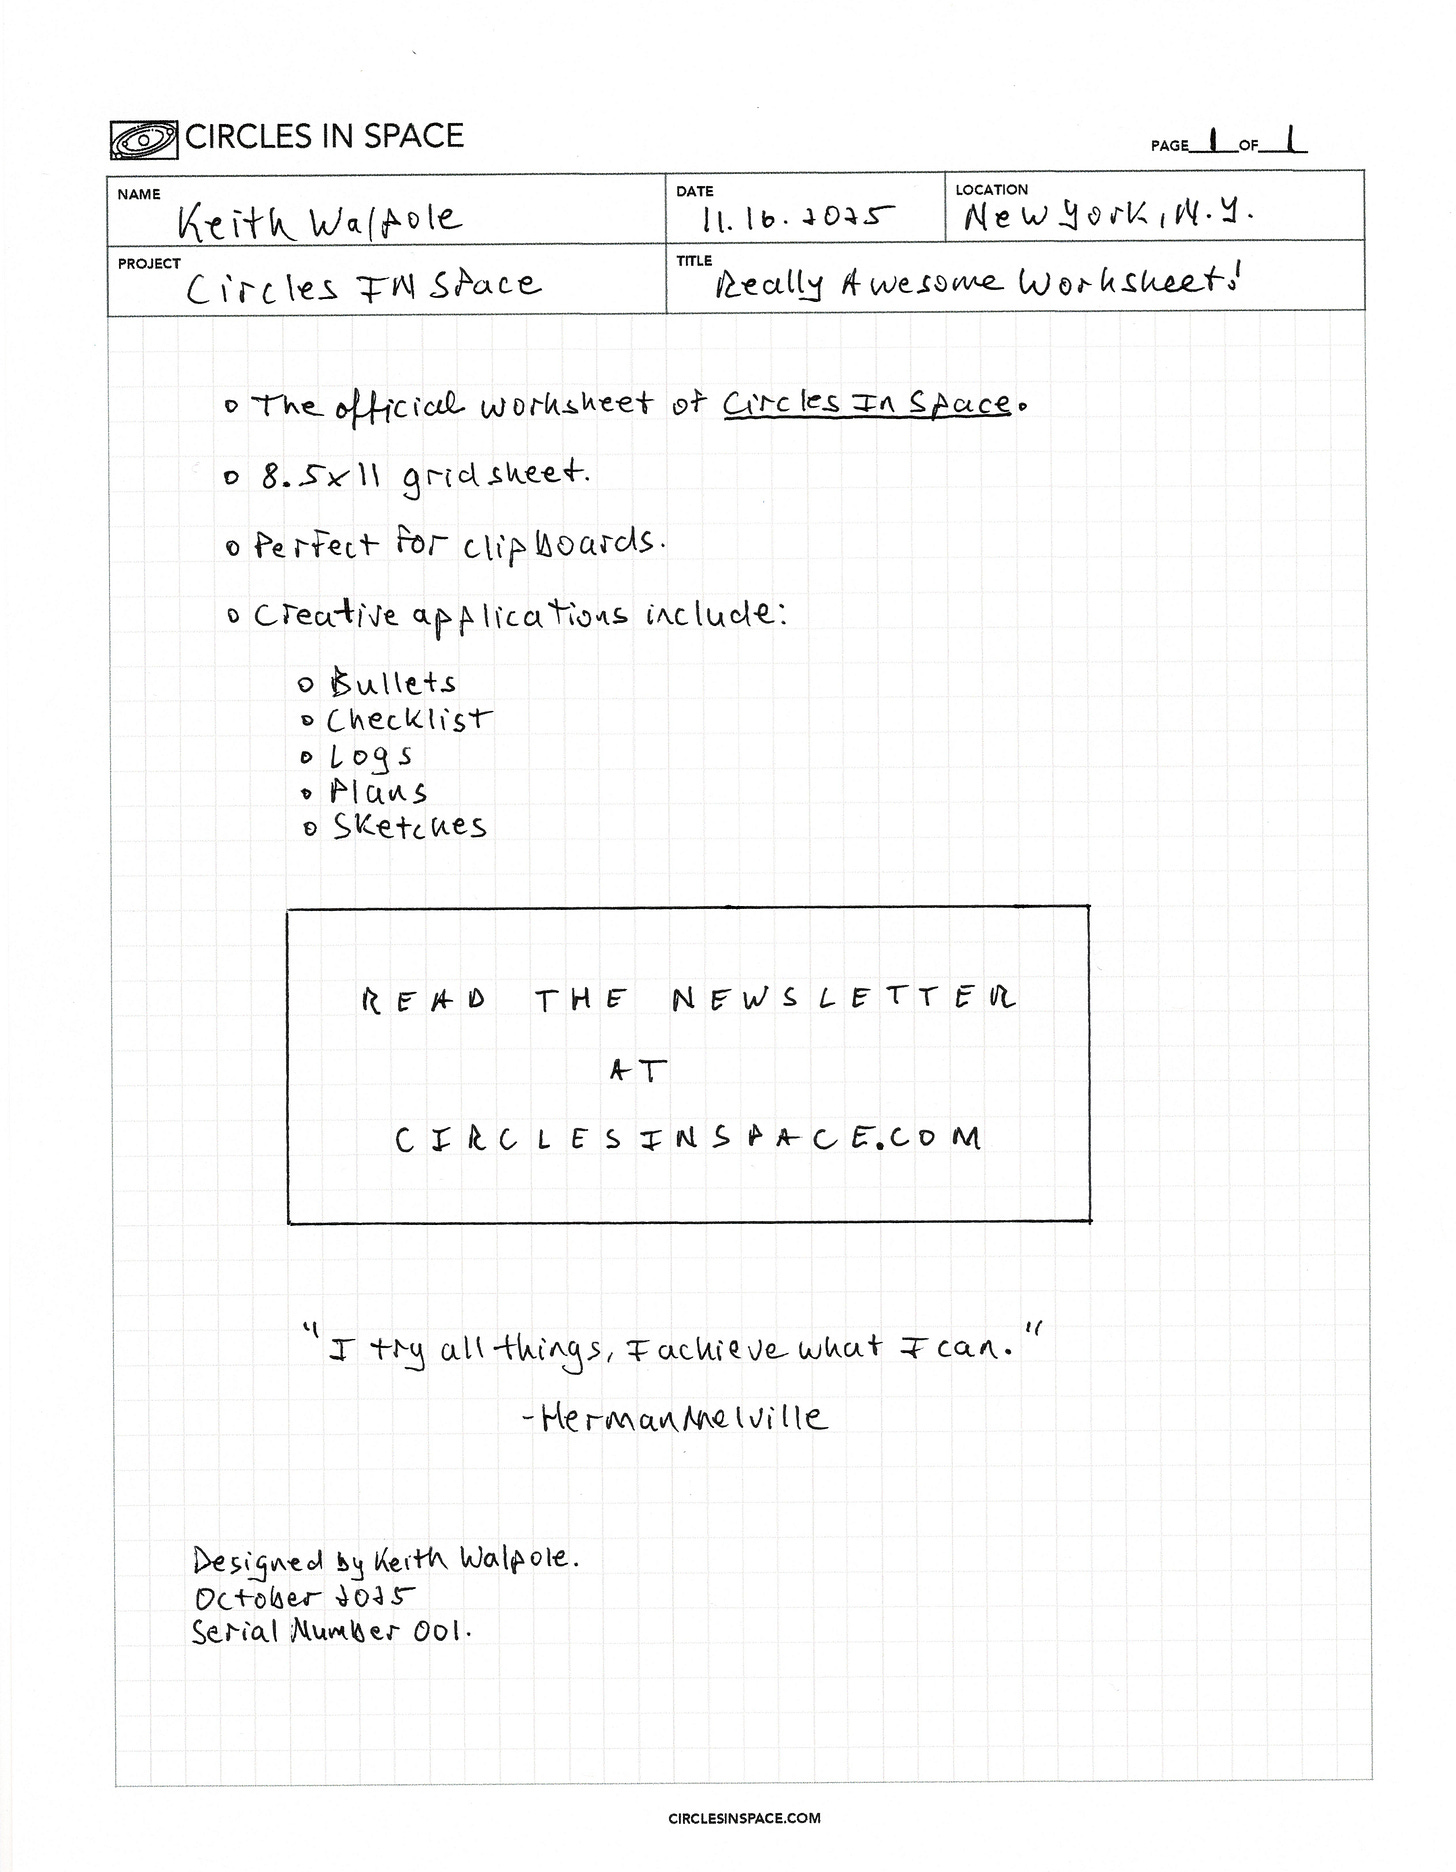 CIRCLES IN SPACE
PAGE 1 OF 1
NAME
Keith Walpole
DATE
11.16.2025
LOCATION
New York, N.Y.
PROJECT
Circles In Space
TITLE
Really Awesome Worksheet!
o The official worksheet of Circles In Space.
o 8.5x11 grid sheet.
o Perfect for clipboards.
o Creative applications include:
o Bullets
o Checklist
o Logs
o Plans
o Sketches
READ THE NEWSLETTER
AT
CIRCLESINSPACE.COM
"I try all things, I achieve what I can."
-Herman Melville
Designed by Keith Walpole.
October 2025
Serial Number 001.
CIRCLESINSPACE.COM